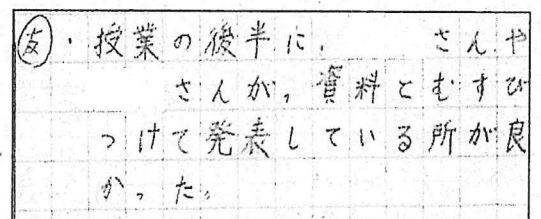 友・授業の後半に、　　さんや
さんが、資料とむすび
つけて発表している所が良
かった。